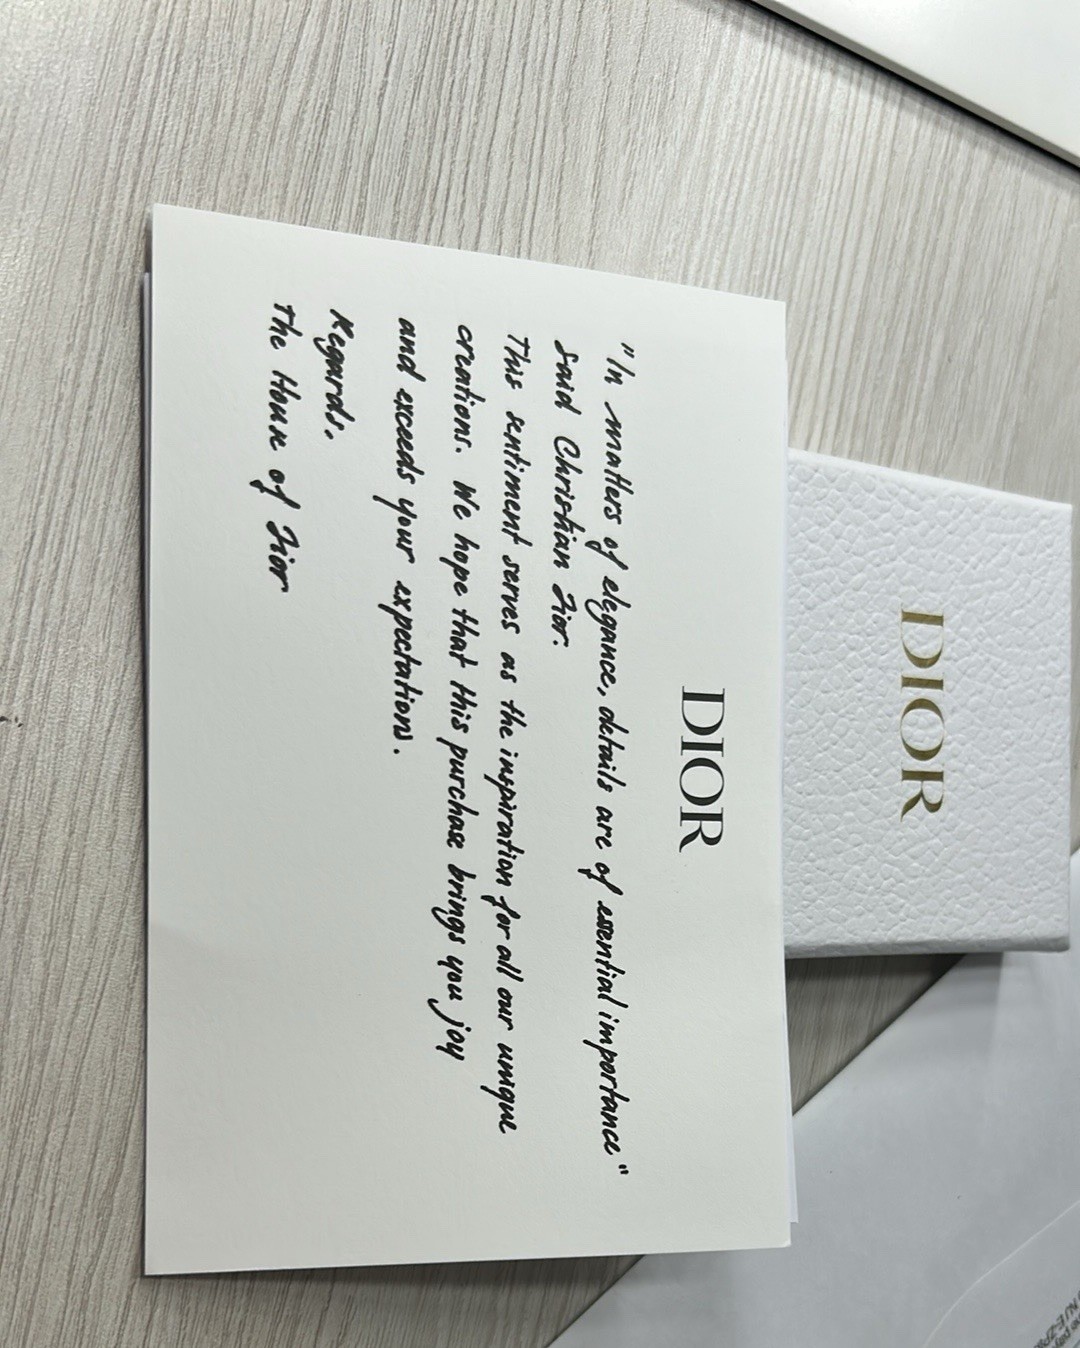 DIOR
"In matters of elegance, details are of essential importance"
said Christian Dior.
This sentiment serves as the inspiration for all our unique
creations. We hope that this purchase brings you joy
and exceeds your expectations.
Regards.
The House of Dior
DIOR